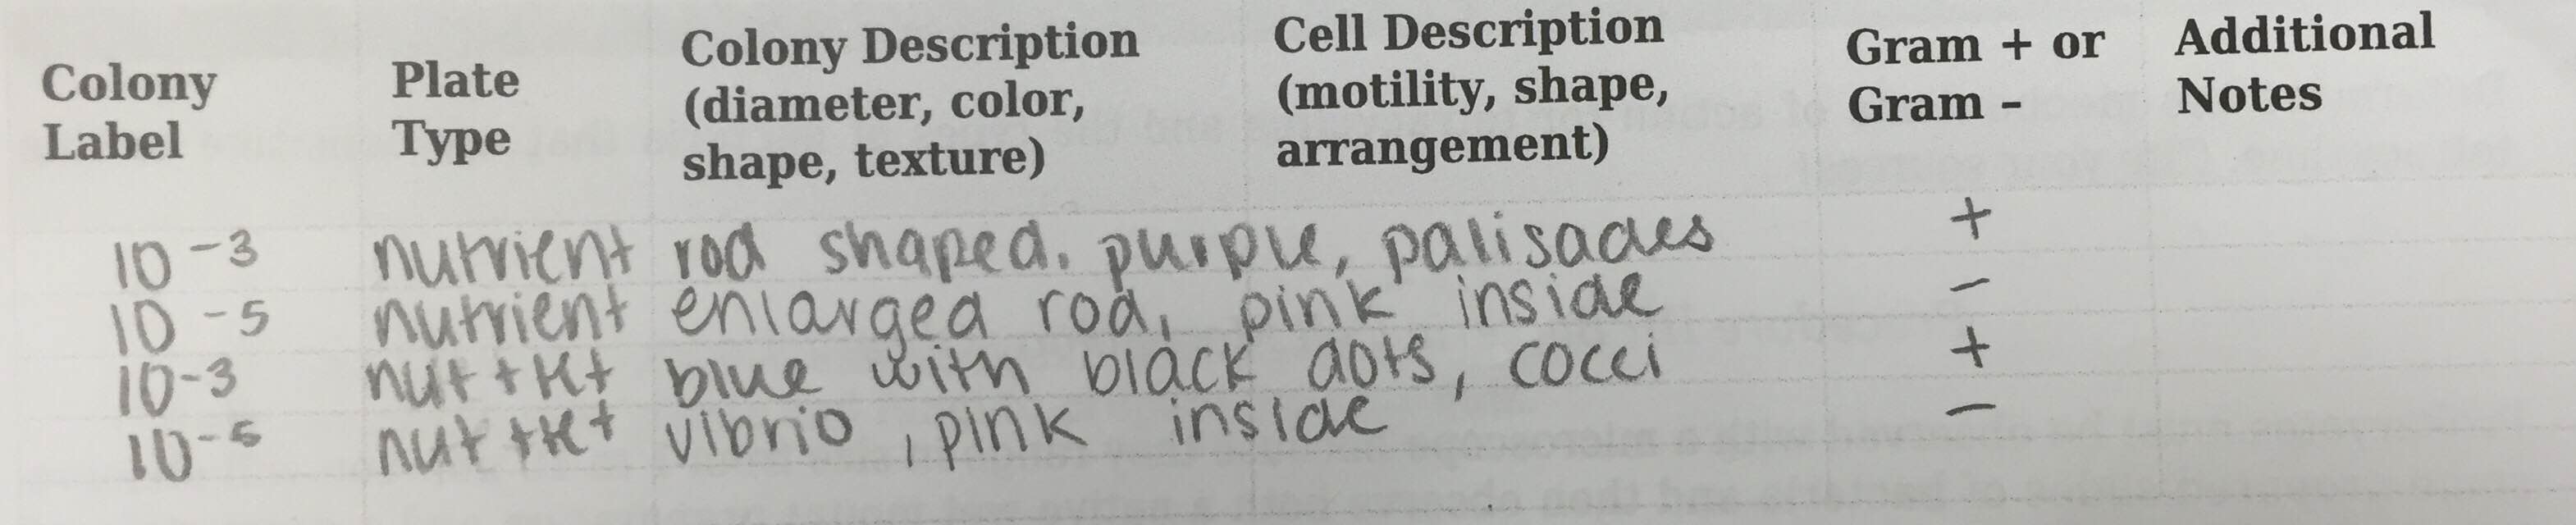 Colony Label
Plate Type
Colony Description (diameter, color, shape, texture)
Cell Description (motility, shape, arrangement)
Gram + or Gram -
Additional Notes
10 -3 nutrient rod shaped, purple, palisades +
10 -5 nutrient enlarged rod, pink inside -
10-3 nut + Kt blue with black dots, cocci +
10-5 nut + Kt vibrio, pink inside -